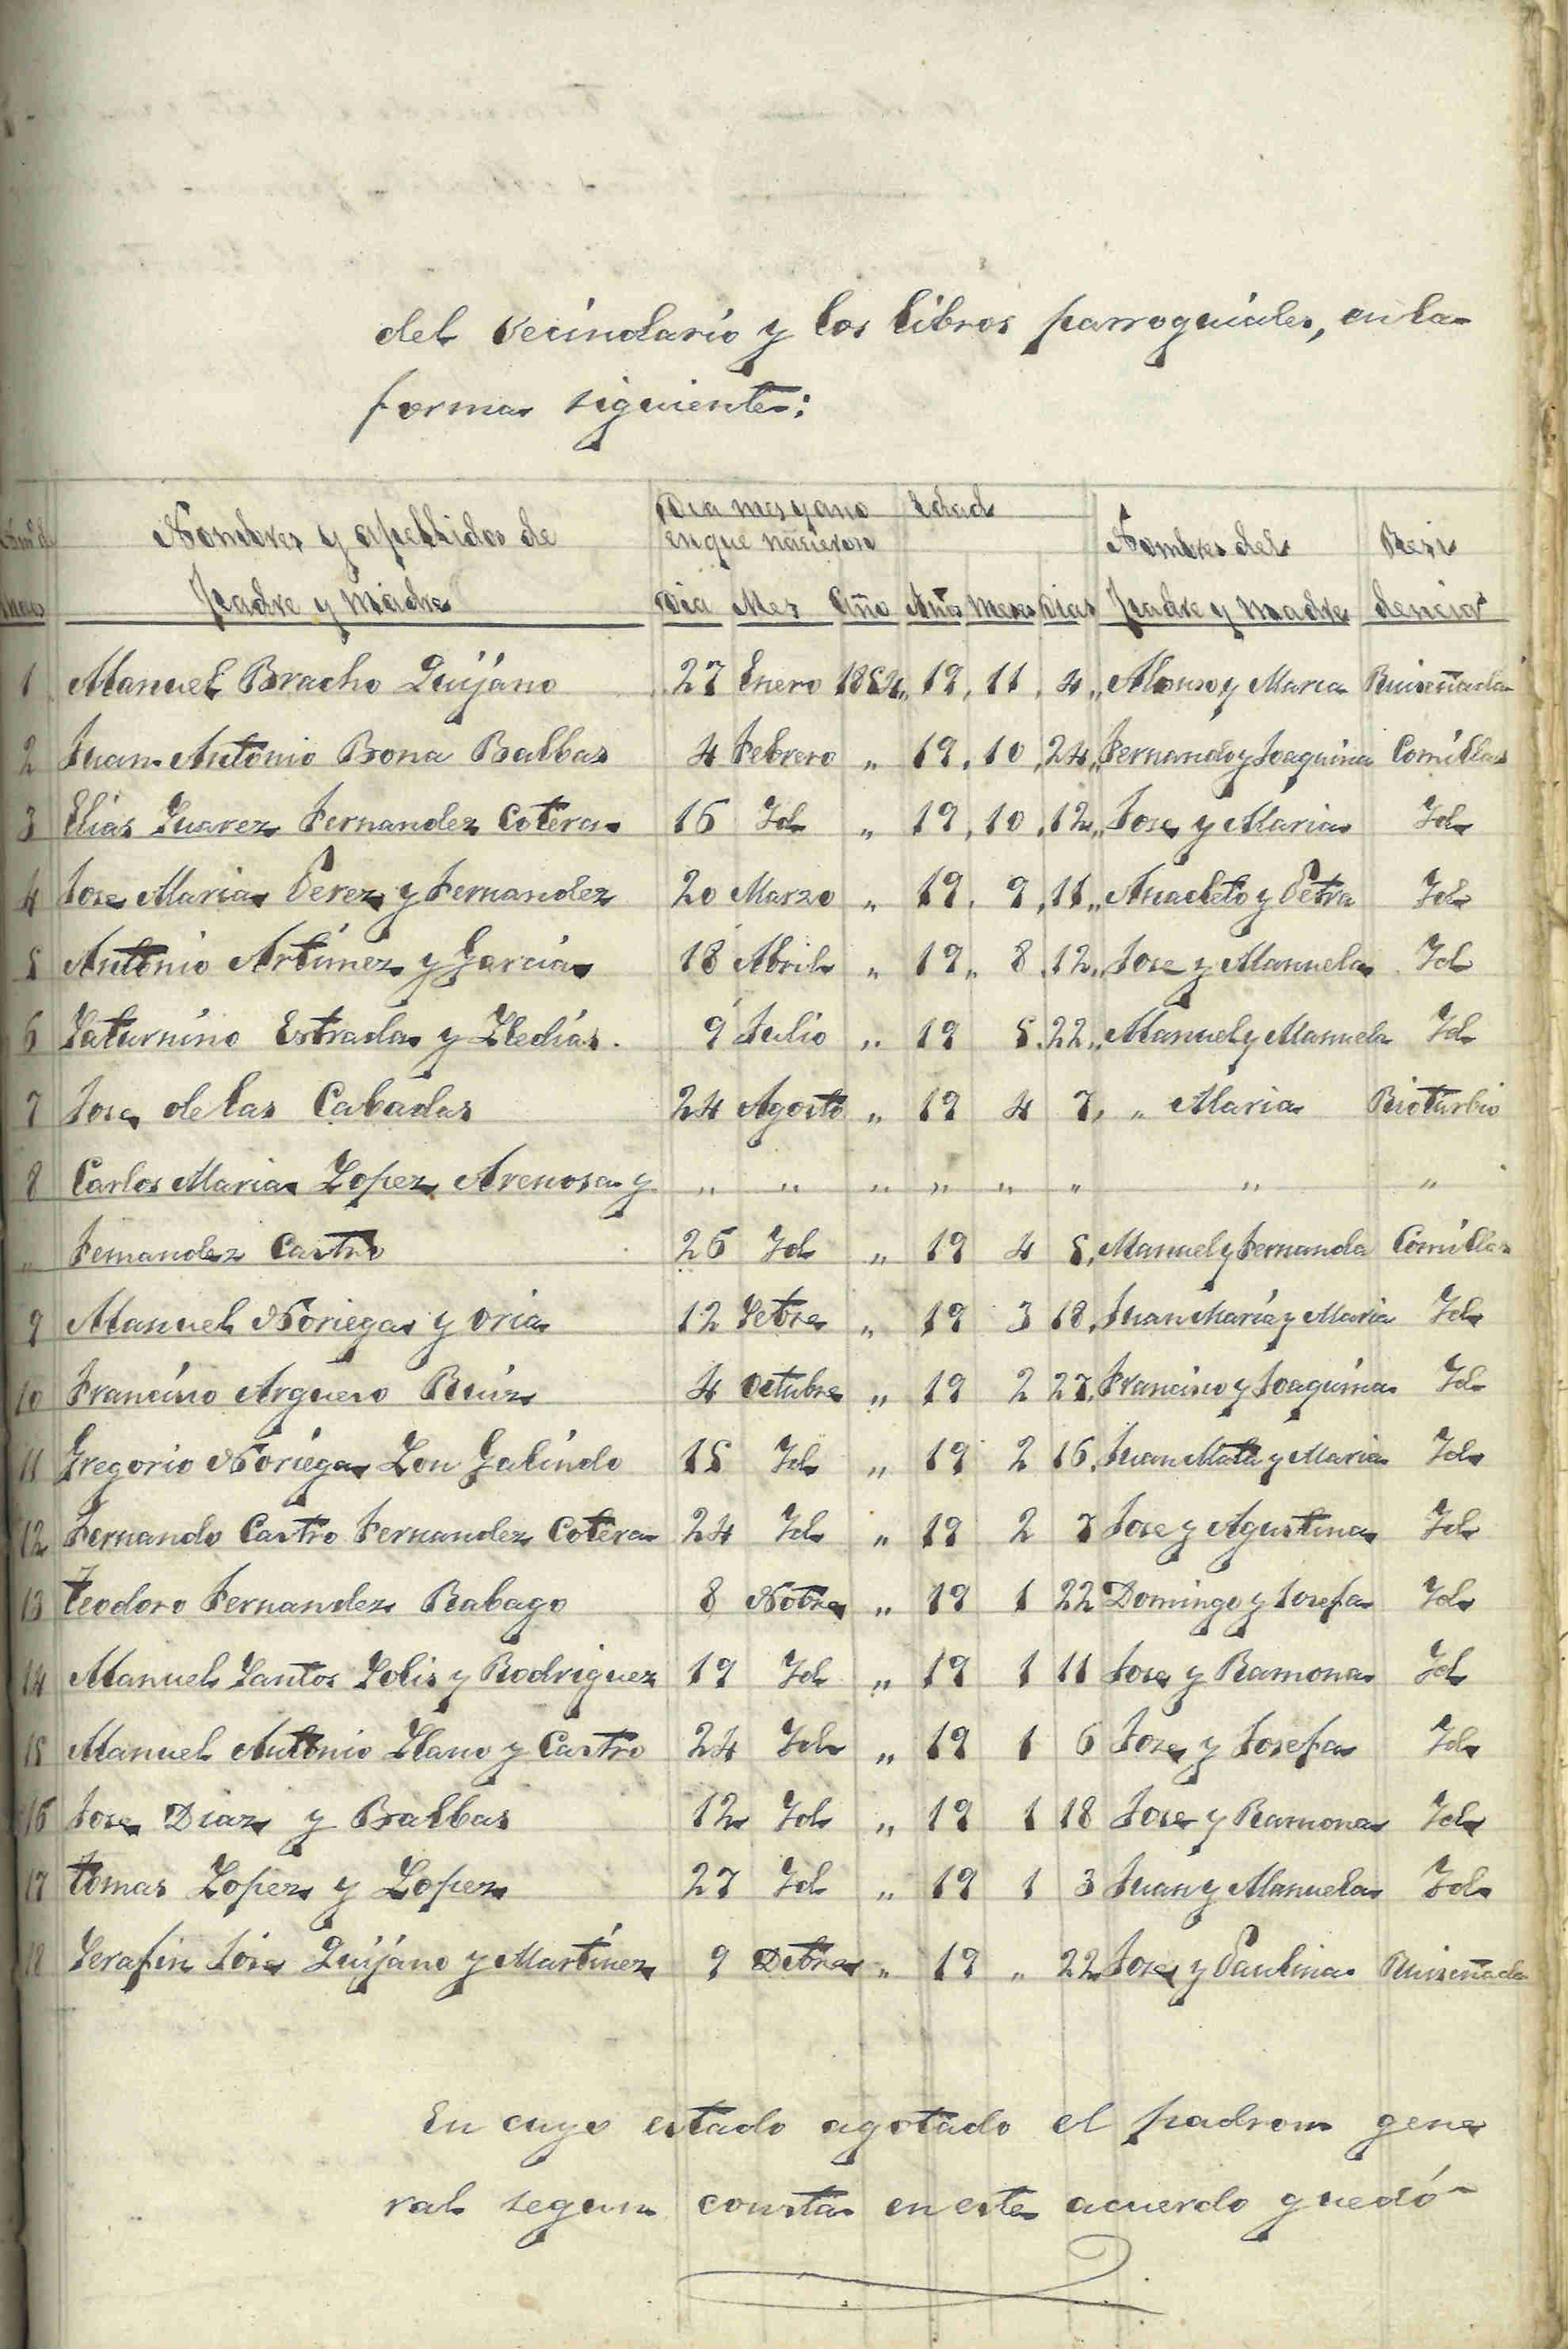 del vecindario y los libros parroquiales, en la
forma siguiente:
Nombres y apellidos de Padre y Madre Dia mes y año en que nacieron Edad Nombres del Padre y Madre Resi dencia
Dia Mes Año Años Meses Dias
1 Manuel Bracho Quijano 27 Enero 1854 „ 19 „ 11 „ 4 „ Alonso y Maria Ruiseñada
2 Juan Antonio Bona Balbas 4 Febrero „ 19 „ 10 „ 24 „ Fernando y Joaquina Comillas
3 Elias Juarez Fernandez Cotera 16 Id „ 19 „ 10 „ 12 „ Jose y Maria Id
4 Jose Maria Perez y Fernandez 20 Marzo „ 19 „ 9 „ 11 „ Anacleto y Petra Id
5 Antonio Artimez y Garcia 18 Abril „ 19 „ 8 „ 12 „ Jose y Manuela Id
6 Saturnino Estrada y Lledias 9 Julio „ 19 5 22 „ Manuel y Manuela Id
7 Jose de las Cabadas 24 Agosto „ 19 4 7 „ „ Maria Rioturbio
8 Carlos Maria Lopez Arenosa y „ „ „ „ „ „ „ „
„ Fernandez Castro 26 Id „ 19 4 5 Manuel y Fernanda Comillas
9 Manuel Noriega y Oria 12 Setbre „ 19 3 18 Juan Maria y Maria Id
10 Francisco Arguero Ruiz 4 Octubre „ 19 2 27 Francisco y Joaquina Id
11 Gregorio Noriega Lon Galindo 15 Id „ 19 2 16 Juan Mata y Maria Id
12 Fernando Castro Fernandez Cotera 24 Id „ 19 2 7 Jose y Agustina Id
13 Teodoro Fernandez Rabago 8 Notre „ 19 1 22 Domingo y Josefa Id
14 Manuel Santos Solis y Rodriguez 19 Id „ 19 1 11 Jose y Ramona Id
15 Manuel Antonio Llano y Castro 24 Id „ 19 1 6 Jose y Josefa Id
16 Jose Diaz y Balbas 12 Id „ 19 1 18 Jose y Ramona Id
17 Tomas Lopez y Lopez 27 Id „ 19 1 3 Juan y Manuela Id
18 Serafin Jose Quijano y Martinez 9 Dcbre „ 19 „ 22 Jose y Paulina Ruiseñada
En cuyo estado agotado el padron gene
ral segun consta en este acuerdo quedó